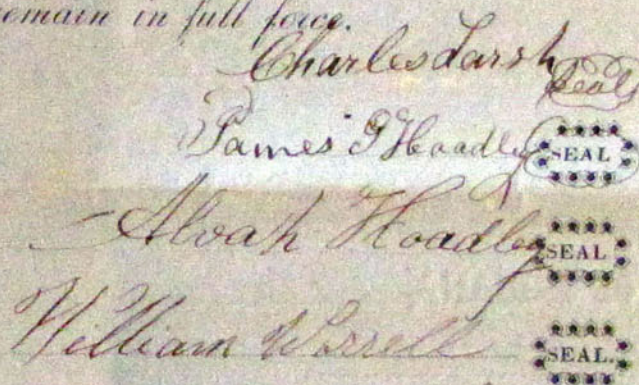 remain in full force.
Charles Larsh Seal
James G Hoadley SEAL
Alvah Hoadley SEAL
William Worrell SEAL.